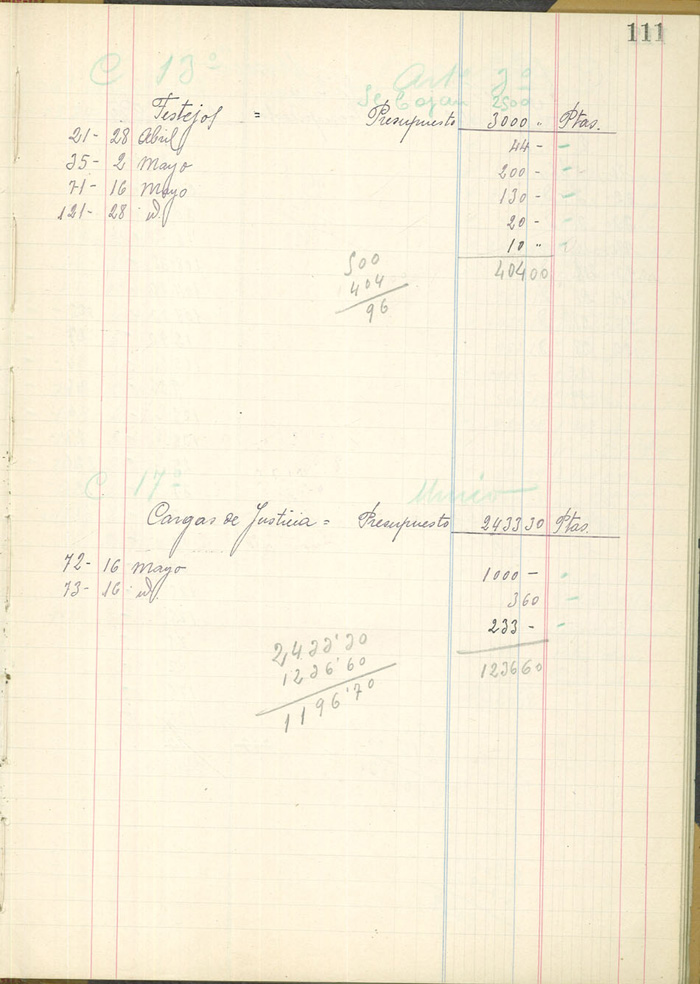 111
C 13º Artº 3º
Se bajan 2500
Festejos = Presupuesto 3000 " Ptas.
21- 28 Abril 44 -
35- 2 Mayo 200 -
71- 16 Mayo 130 -
121- 28 id. 20 -
10 "
404 00
500
404
96
C. 17- Unico
Cargas de Justicia = Presupuesto 2433 30 Ptas.
72- 16 Mayo 1000 -
73- 16 id. 3 60
233 -
1236 60
2433'30
1236'60
1196'70